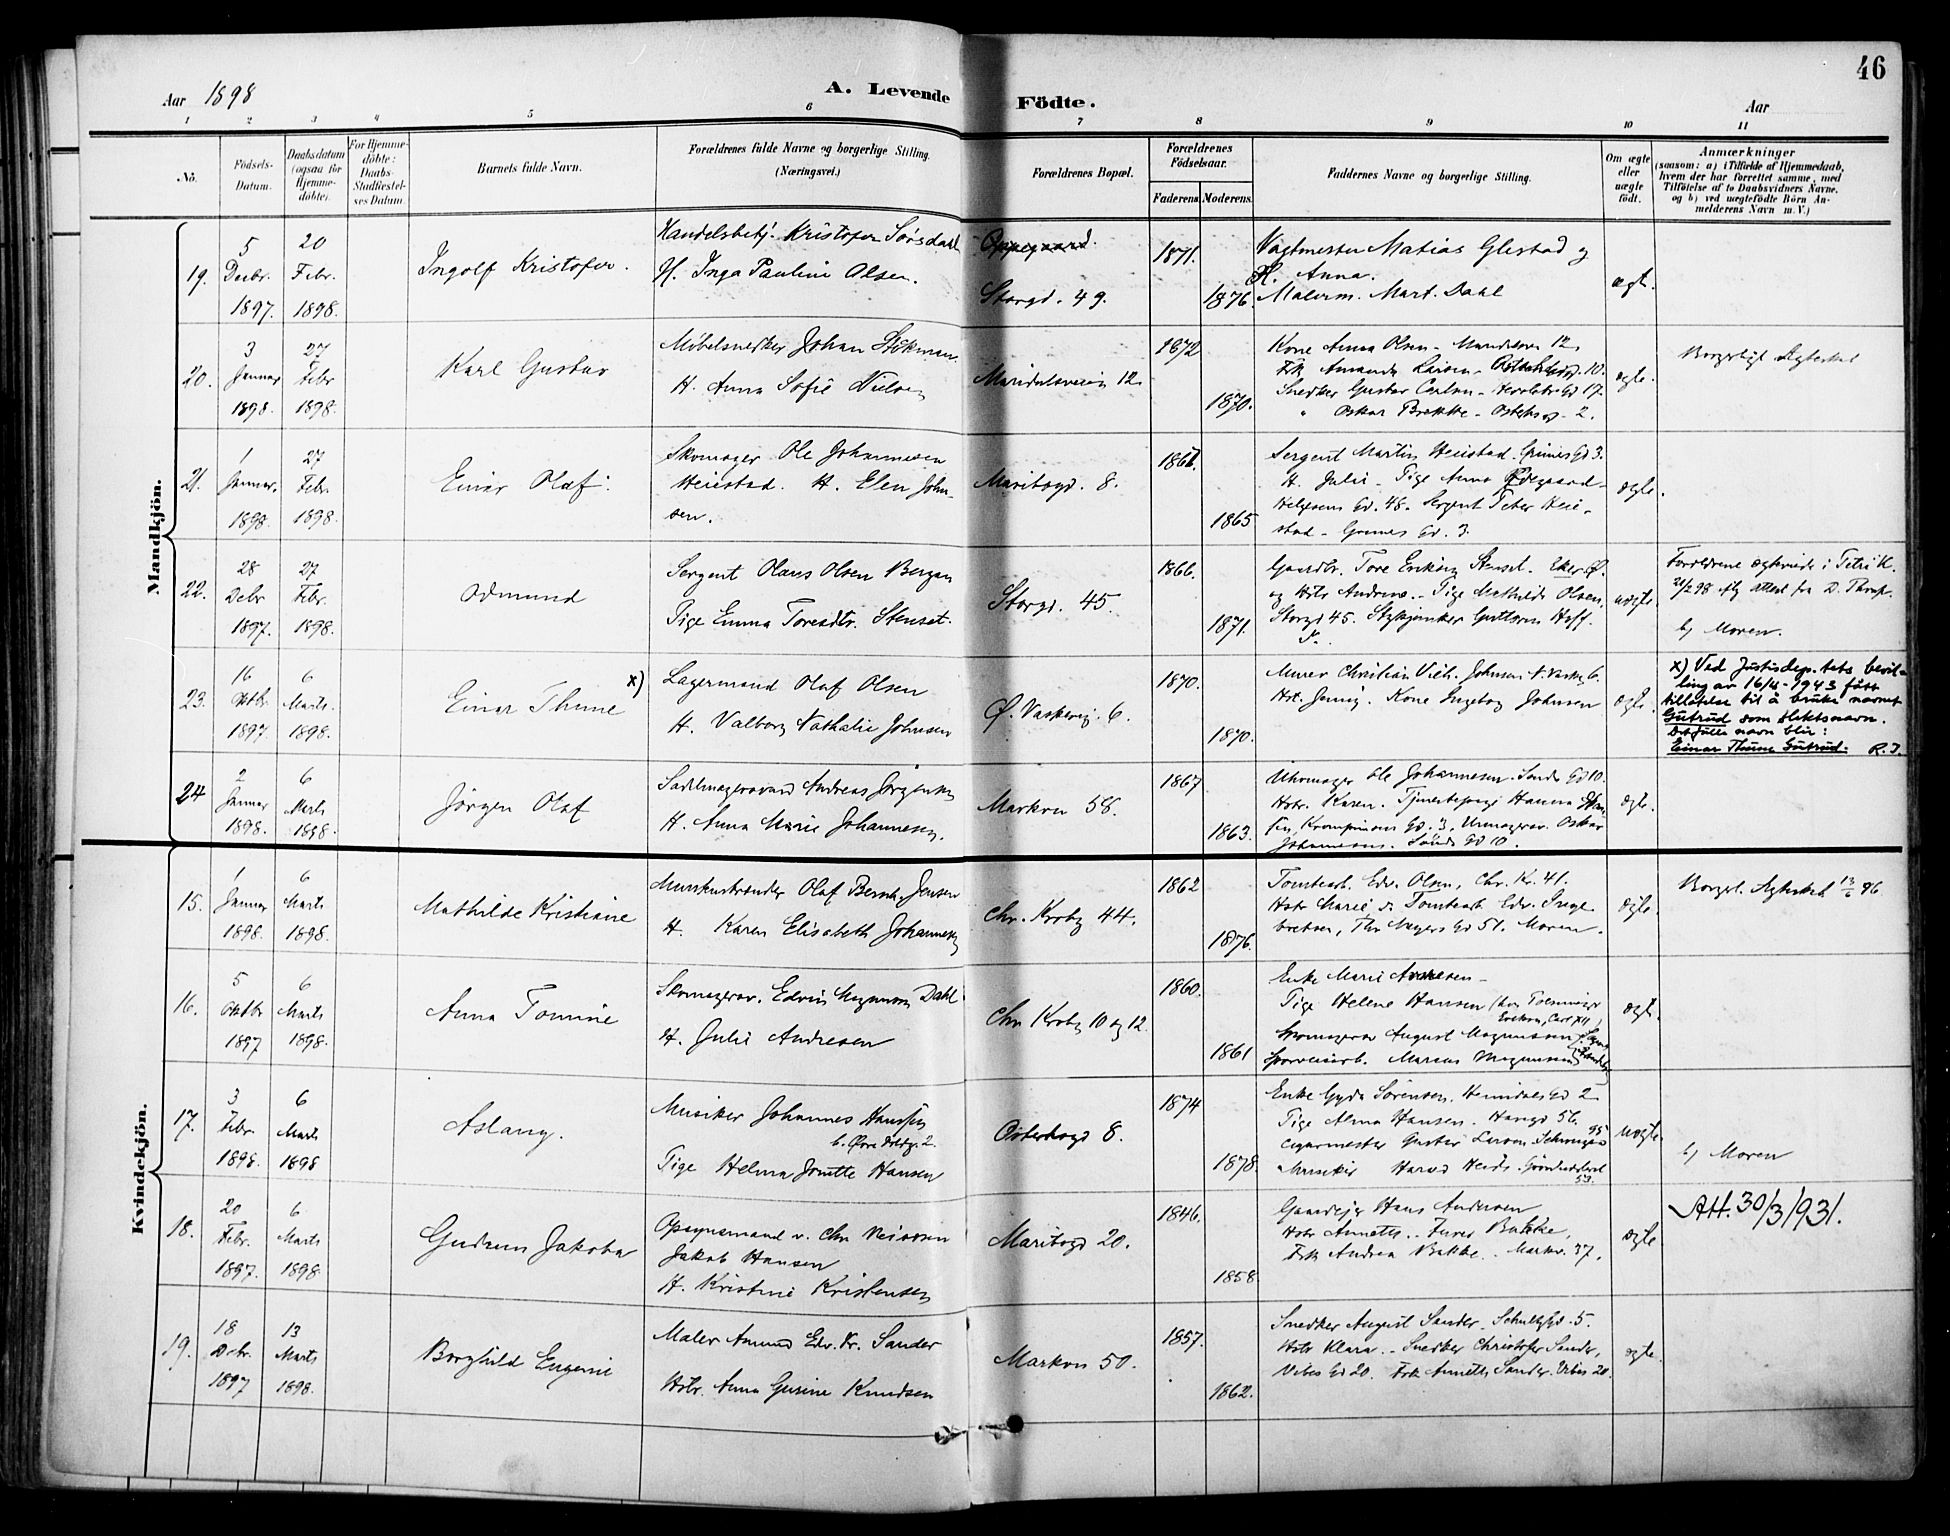 46
Aar 1898
A. Levende Födte.
Aar
1 2 3 4 5 6 7 8 9 10 11
No.
Födsels-
Datum.
Daabsdatum
(ogsaa for
Hjemme-
döbte).
For Hjemme-
döbte:
Daabs-
Stadfæstel-
ses Datum.
Barnets fulde Navn.
Forældrenes fulde Navne og borgerlige Stilling.
(Næringsvei.)
Forældrenes Bopæl.
Forældrenes
Födselsaar.
Faderens. Moderens.
Faddernes Navne og borgerlige Stilling.
Om ægte
eller
uægte
födt.
Anmærkninger
(saasom: a) i Tilfælde af Hjemmedaab,
hvem der har forrettet samme, med
Tilföielse af to Daabsvidners Navne,
og b) ved uægtefödte Börn An-
melderens Navn m. V.)
Mandkjön.
19.
5
Decbr.
1897.
20
Febr.
1898.
Ingolf Kristofer.
Handelsbetj. Kristofer Sørsdahl
H. Inga Pauline Olsen.
Oppegaard.
Storgd. 49.
1871.
1876.
Vagtmester Matias Glestad og
H. Anna.
Malerm. Mart. Dahl
ægt.
20.
3
Januar
1898.
27
Febr
1898.
Karl Gustav
Møbelsnedker Johan
H. Anna Sofie Nilsen
Maridalsveien 12.
1872
1870.
Kone Anna Olsen - 12.
Frk Amanda Larsen - 10.
Snedker Gustav Carlsen - Gd 17.
" Oskar Brekke - 2.
ægte.
Borgerligt Ægteskab
21.
1
Januar.
1898.
27
Febr.
1898.
Einar Olaf.
Skomager Ole Johannesen
Heiestad. H. Elen John-
sen.
Maribogd. 8.
1866.
1865
Sergent Martin Heiestad. Grünes Gd 3.
H. Julie - Pige Anna Ødegaard -
Helgesens Gd. 48. Sergent Peter Heie-
stad - Grünes Gd. 3.
ægte.
22.
28
Debr
1897.
27
Febr.
1898.
Odmund
Sergent Olaus Olsen Bergan
Pige Emma Toresdtr. Stenset.
Storgd. 45.
1866.
1871.
Gaardbr. Tore Eriksen Stenset. Eker Ø.
og Hstr Andrine. - Pige Mathilde Olsen,
Storgd 45. Stykjunker Guttorm Hoff.
uægte.
Forældrene ægteviede i Petri K.
b) Moren.
23.
16
Oktbr.
1897.
6
Marts.
1898.
Einar Thune x)
Lagermand Olaf Olsen
H. Valborg Nathalie Johnsen
Ø. Vaskeveg. 6.
1870.
1870.
Murer Christian Vilh. Johnsen Ø. Vaskeg 6.
Hst. Jenny. Kone Ingeborg Johnsen
ægte.
x) Ved Justisdep.tets bevil-
ling av 16/4-1943 fått
tillatelse til å bruke navnet
Gutrud som slektsnavn.
Det fulle navn blir:
Einar Thune Gutrud. R. J.
24
2
Januar
1898.
6
Marts
1898.
Jörgen Olaf
Sadelmagersvend Andreas Jørgensen
H. Anna Marie Johannesen.
Markvn 58.
1867
1863.
Uhrmager Ole Johannesen. Gd 10.
Hstr. Karen. Tjenestepige Hanna Han-
sen, Gd. 3, Urmagersv. Oskar
Johannesen. Gd 10.
ægte.
Kvindekjön.
15.
1
Januar
1898.
6
Marts
1898.
Mathilde Kristiane
Olaf Bernh. Jensen
H. Karen Elisabeth Johannesen
Chr. Krohg 44.
1862
1876.
Tomtearb. Edv. Olsen, Chr. Kr. 41.
Hstr Marie & Tomtearb Edv. Inge-
bretsen, Thv Meyers Gd 51. Moren.
ægte.
Borgerl. Ægteskab 13/6 96
16.
5
Oktbr
1897
6
Marts
1898.
Anna Tomine
Skomagersv. Edvin Magnusen Dahl
H. Julie Andresen
Chr Krohg 10 og 12.
1860.
1861
Enke Marie Andresen -
Pige Helene Hansen
Skomagersv August Magnussen
Sporveiarb. Marius Magnussen
ægte.
17.
3
Febr.
1898.
6
Marts
1898
Aslaug.
Musiker Johannes Hanssen
Pige Helma Jonette Hansen
Osterhogd 8.
1874
1878.
Enke Gyda Sørensen. Gd 2
Pige Alma Hansen. 56.
Cigarmester Gustav Larsen 95
Musiker Harald
53.
uægte.
b) Moren
18.
20
Febr.
1897.
6
Marts
1898.
Gudrun Jakoba
Opsynsmand v. Chr
Jakob Hansen
H. Kristine Kristensen
Maribogd 20.
1846.
1858.
Gaardejer Hans Andersen
Hstr Annette. - Bakke,
Frk Andrea Bakke. - Markv. 37.
ægte
Att. 30/3/931.
19.
18
Debr.
1897
13
Marts
1898.
Borghild Eugenie
Maler Amund Edv. Fr. Sander
Hstr. Anna Gurine Knudsen
Markvn 50.
1857.
1862.
Snedker August Sander - Schultzgd. 5.
Hstr Klara. - Snedker Christofer Sander,
Vibes Gd 20. Frk Annette Sander. Vibes 20.
ægte.